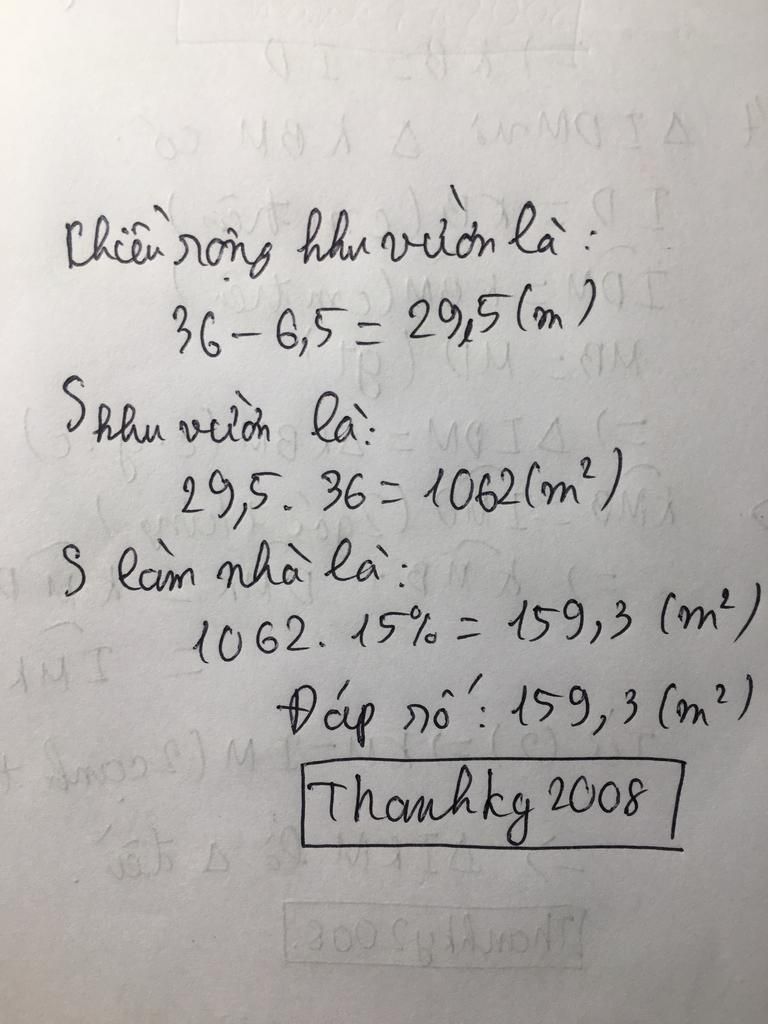 Chiều rộng khu vườn là:
36 - 6,5 = 29,5 (m)
S khu vườn là:
29,5 . 36 = 1062 (m²)
S làm nhà là:
1062 . 15% = 159,3 (m²)
Đáp số: 159,3 (m²)
Thanhkg 2008